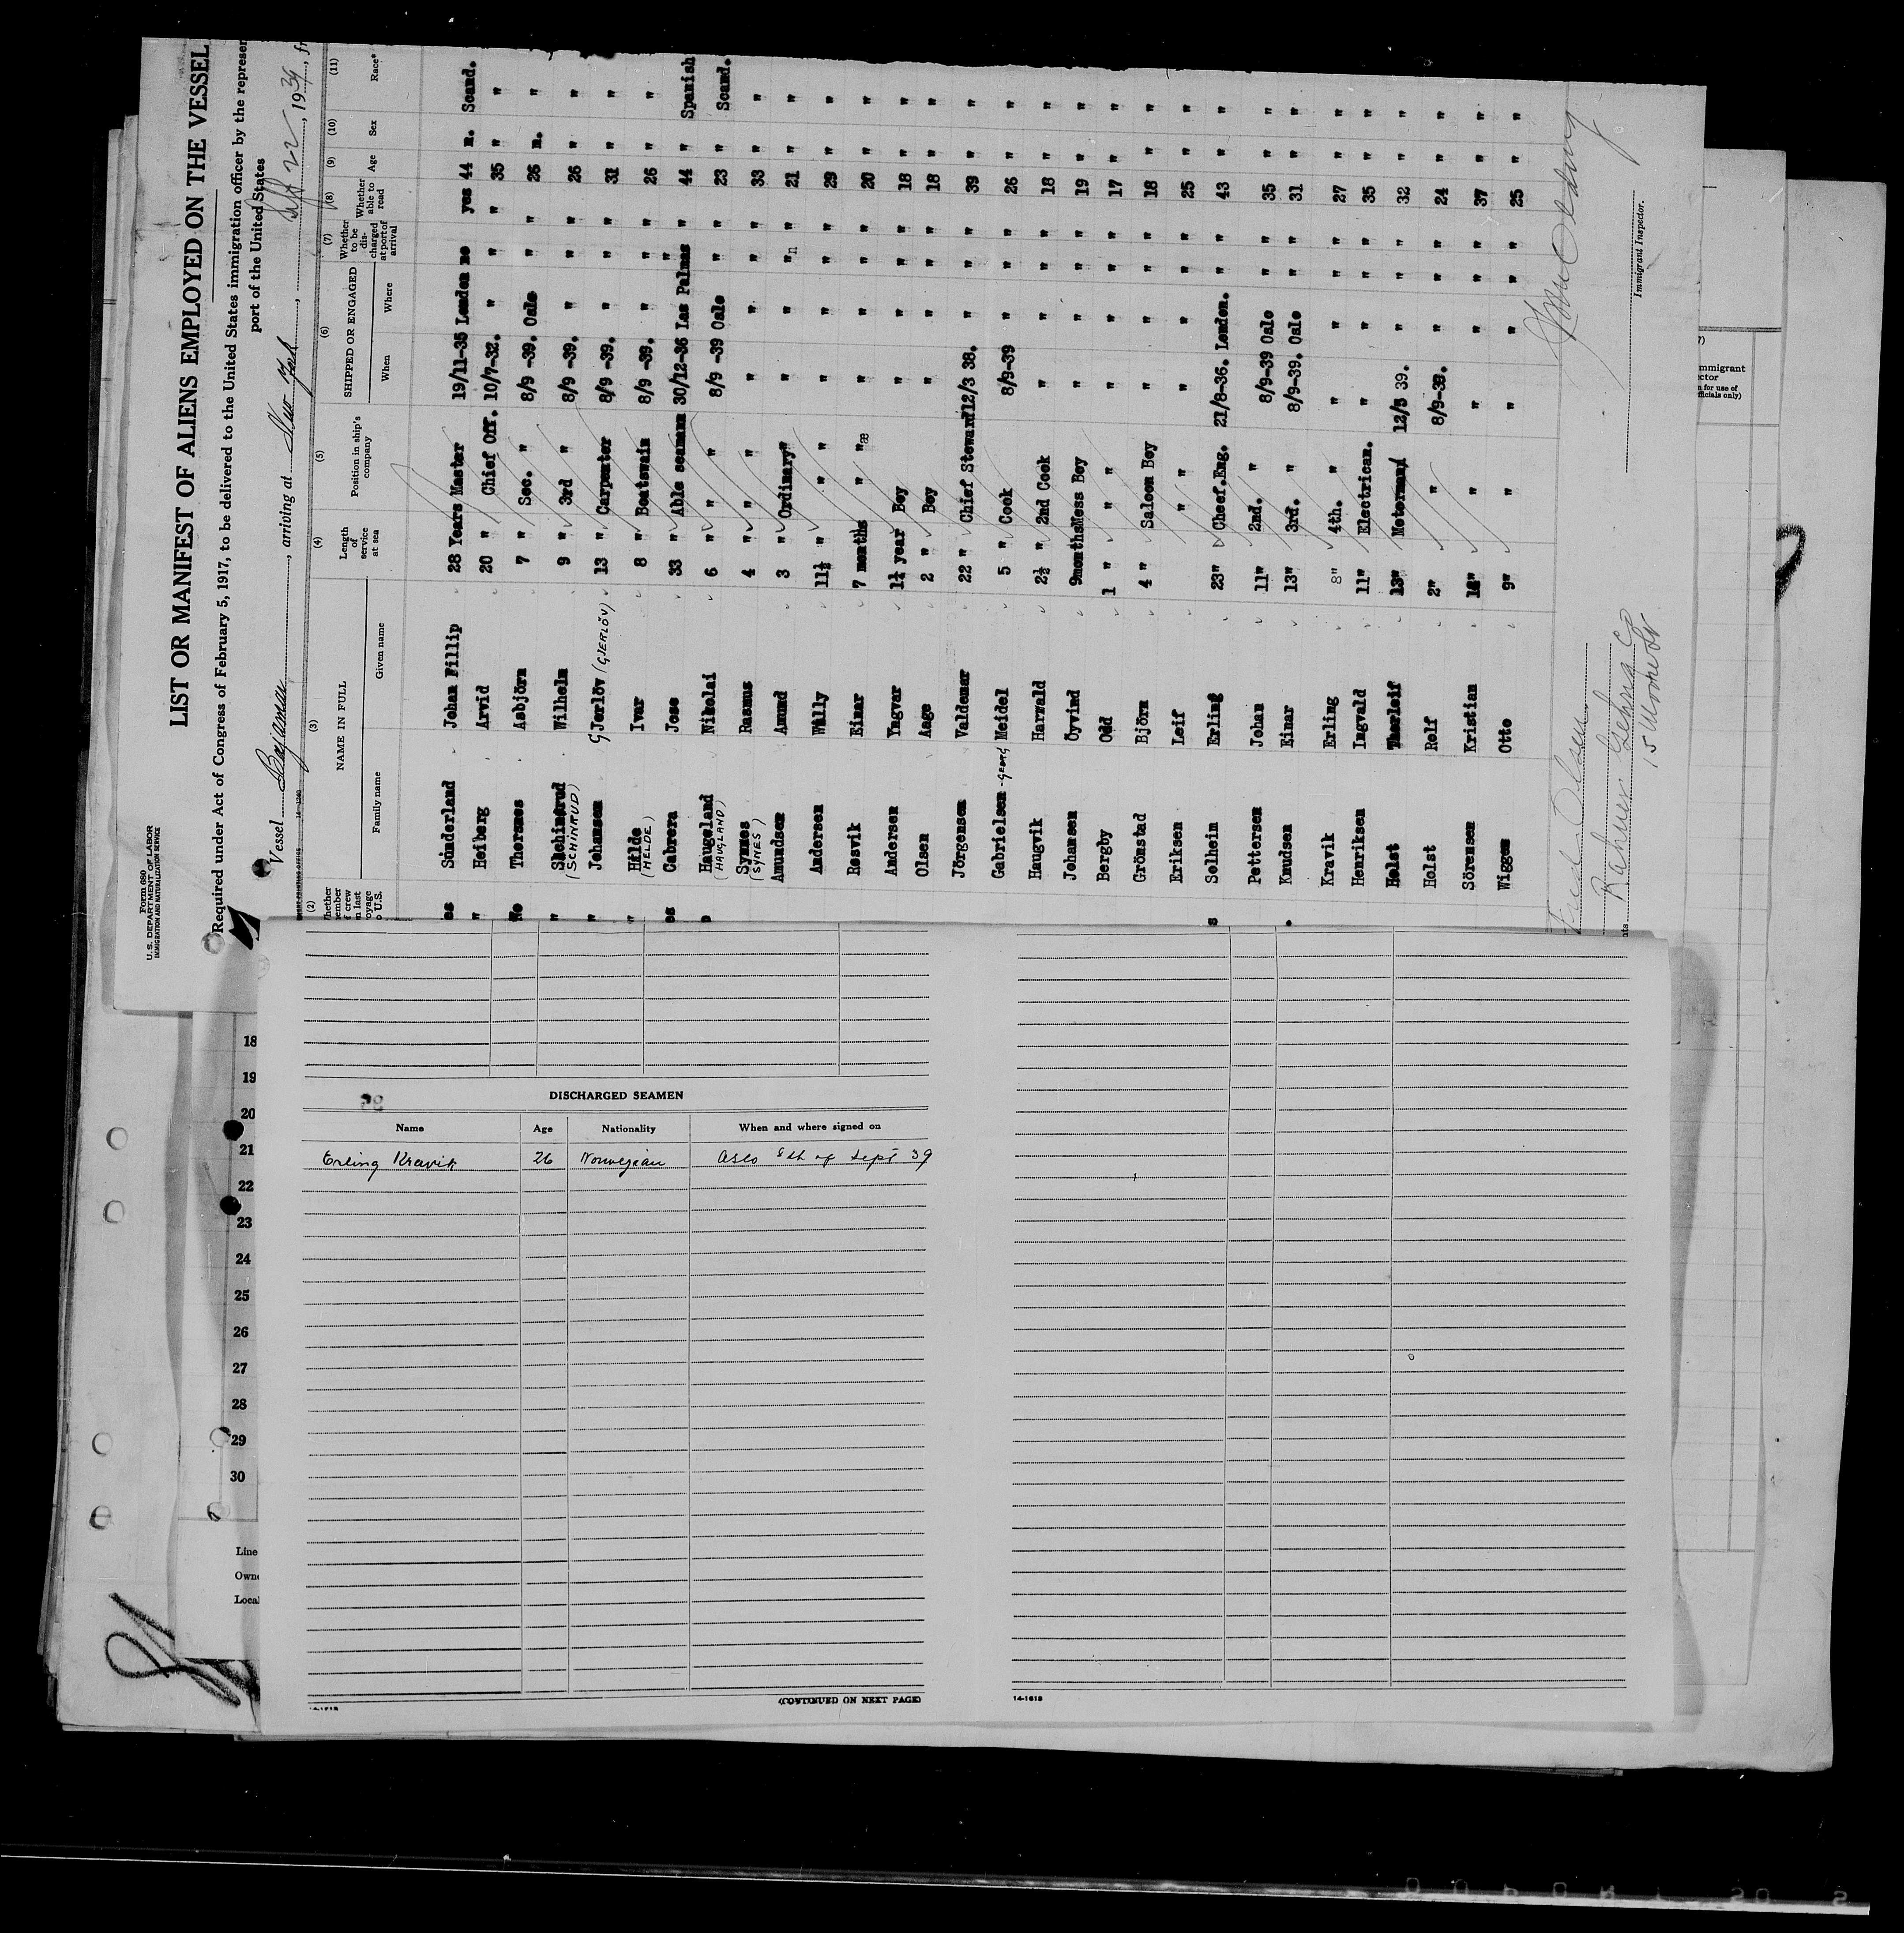 Form 680
U. S. DEPARTMENT OF LABOR
IMMIGRATION AND NATURALIZATION SERVICE
LIST OR MANIFEST OF ALIENS EMPLOYED ON THE VESSEL
Required under Act of Congress of February 5, 1917, to be delivered to the United States immigration officer by the represen
port of the United States
Vessel Bajamar, arriving at New York, Sept 22, 1939, fr
(2) (3) (4) (5) (6) (7) (8) (9) (10) (11)
NAME IN FULL Length of service at sea Position in ship's company SHIPPED OR ENGAGED Whether to be discharged at port of arrival Whether able to read Age Sex Race*
Family name Given name When Where
es Sönderland Johan Fillip 28 Years Master 19/11-35 London no yes 44 m. Scand.
" Heiberg Arvid 20 " Chief Off. 10/7-32. " " " 35 " "
No Thorsnes Asbjörn 7 " Sec. " 8/9 -39. Oslo " " 26 m. "
" Schinstrud (SCHINRUD) Wilhelm 9 " 3rd " 8/9 -39. " " " 26 " "
" Johansen Gjerlöv (GJERLÖV) 13 " Carpenter 8/9 -39. " " " 31 " "
" Hilde (HELDE) Ivar 8 " Boatswain 8/9 -39. " " " 26 " "
es Cabrera Jose 33 " Able seamann 30/12-36 Las Palmas " " 44 " Spanish
o Haugeland (HAUGLAND) Nikolai 6 " " " 8/9 -39 Oslo " " 23 " Scand.
Synnes (SYNES) Rasmus 4 " " " " " " " 33 " "
Amundsen Amund 3 " Ordinary" " " " " 21 " "
Andersen Willy 11½ " " " " " " " 29 " "
Rosvik Einar 7 months " " " " " " 20 " "
Andersen Yngvar 1½ year Boy " " " " 18 " "
Olsen Aage 2 " Boy " " " " 18 " "
Jörgensen Valdemar 22 " Chief Steward 12/3 38. " " " 39 " "
Gabrielsen - Georg Meidel 5 " Cook 8/9-39 " " " 26 " "
Haugvik Harwald 2½ " 2nd Cook " " " " 18 " "
Johansen Öyvind 9months Mess Boy " " " " 19 " "
Bergby Odd 1 " " " " " " " 17 " "
Grönstad Björn 4 " Saloon Boy " " " " 18 " "
Eriksen Leif " " " " " " 25 " "
s Solheim Erling 23" Cheef.Eng. 21/8-36. London. " " 43 " "
Pettersen Johan 11" 2nd. " 8/9-39 Oslo " " 35 " "
Knudsen Einar 13" 3rd. " 8/9-39. Oslo " " 31 " "
Kravik Erling 8" 4th. " " " " " 27 " "
Henriksen Ingvald 11" Electrican. " " " " 35 " "
Holst Thorleif 13" Motorman 12/5 39. " " " 32 " "
Holst Rolf 2" " 8/9-39. " " " 24 " "
Sörensen Kristian " " " " " 37 " "
Wiggen Otto 9" " " " " " 25 " "
Fred Olsen
Immigrant Inspector.
mmigrant
ctor
n for use of
ficials only)
18
19
20
21
22
23
24
25
26
27
28
29
30
Line
Owne
Local
DISCHARGED SEAMEN
Name Age Nationality When and where signed on
Erling Kravik 26 Norwegian Oslo 8th of Sept 39
(CONTINUED ON NEXT PAGE)
14-1613